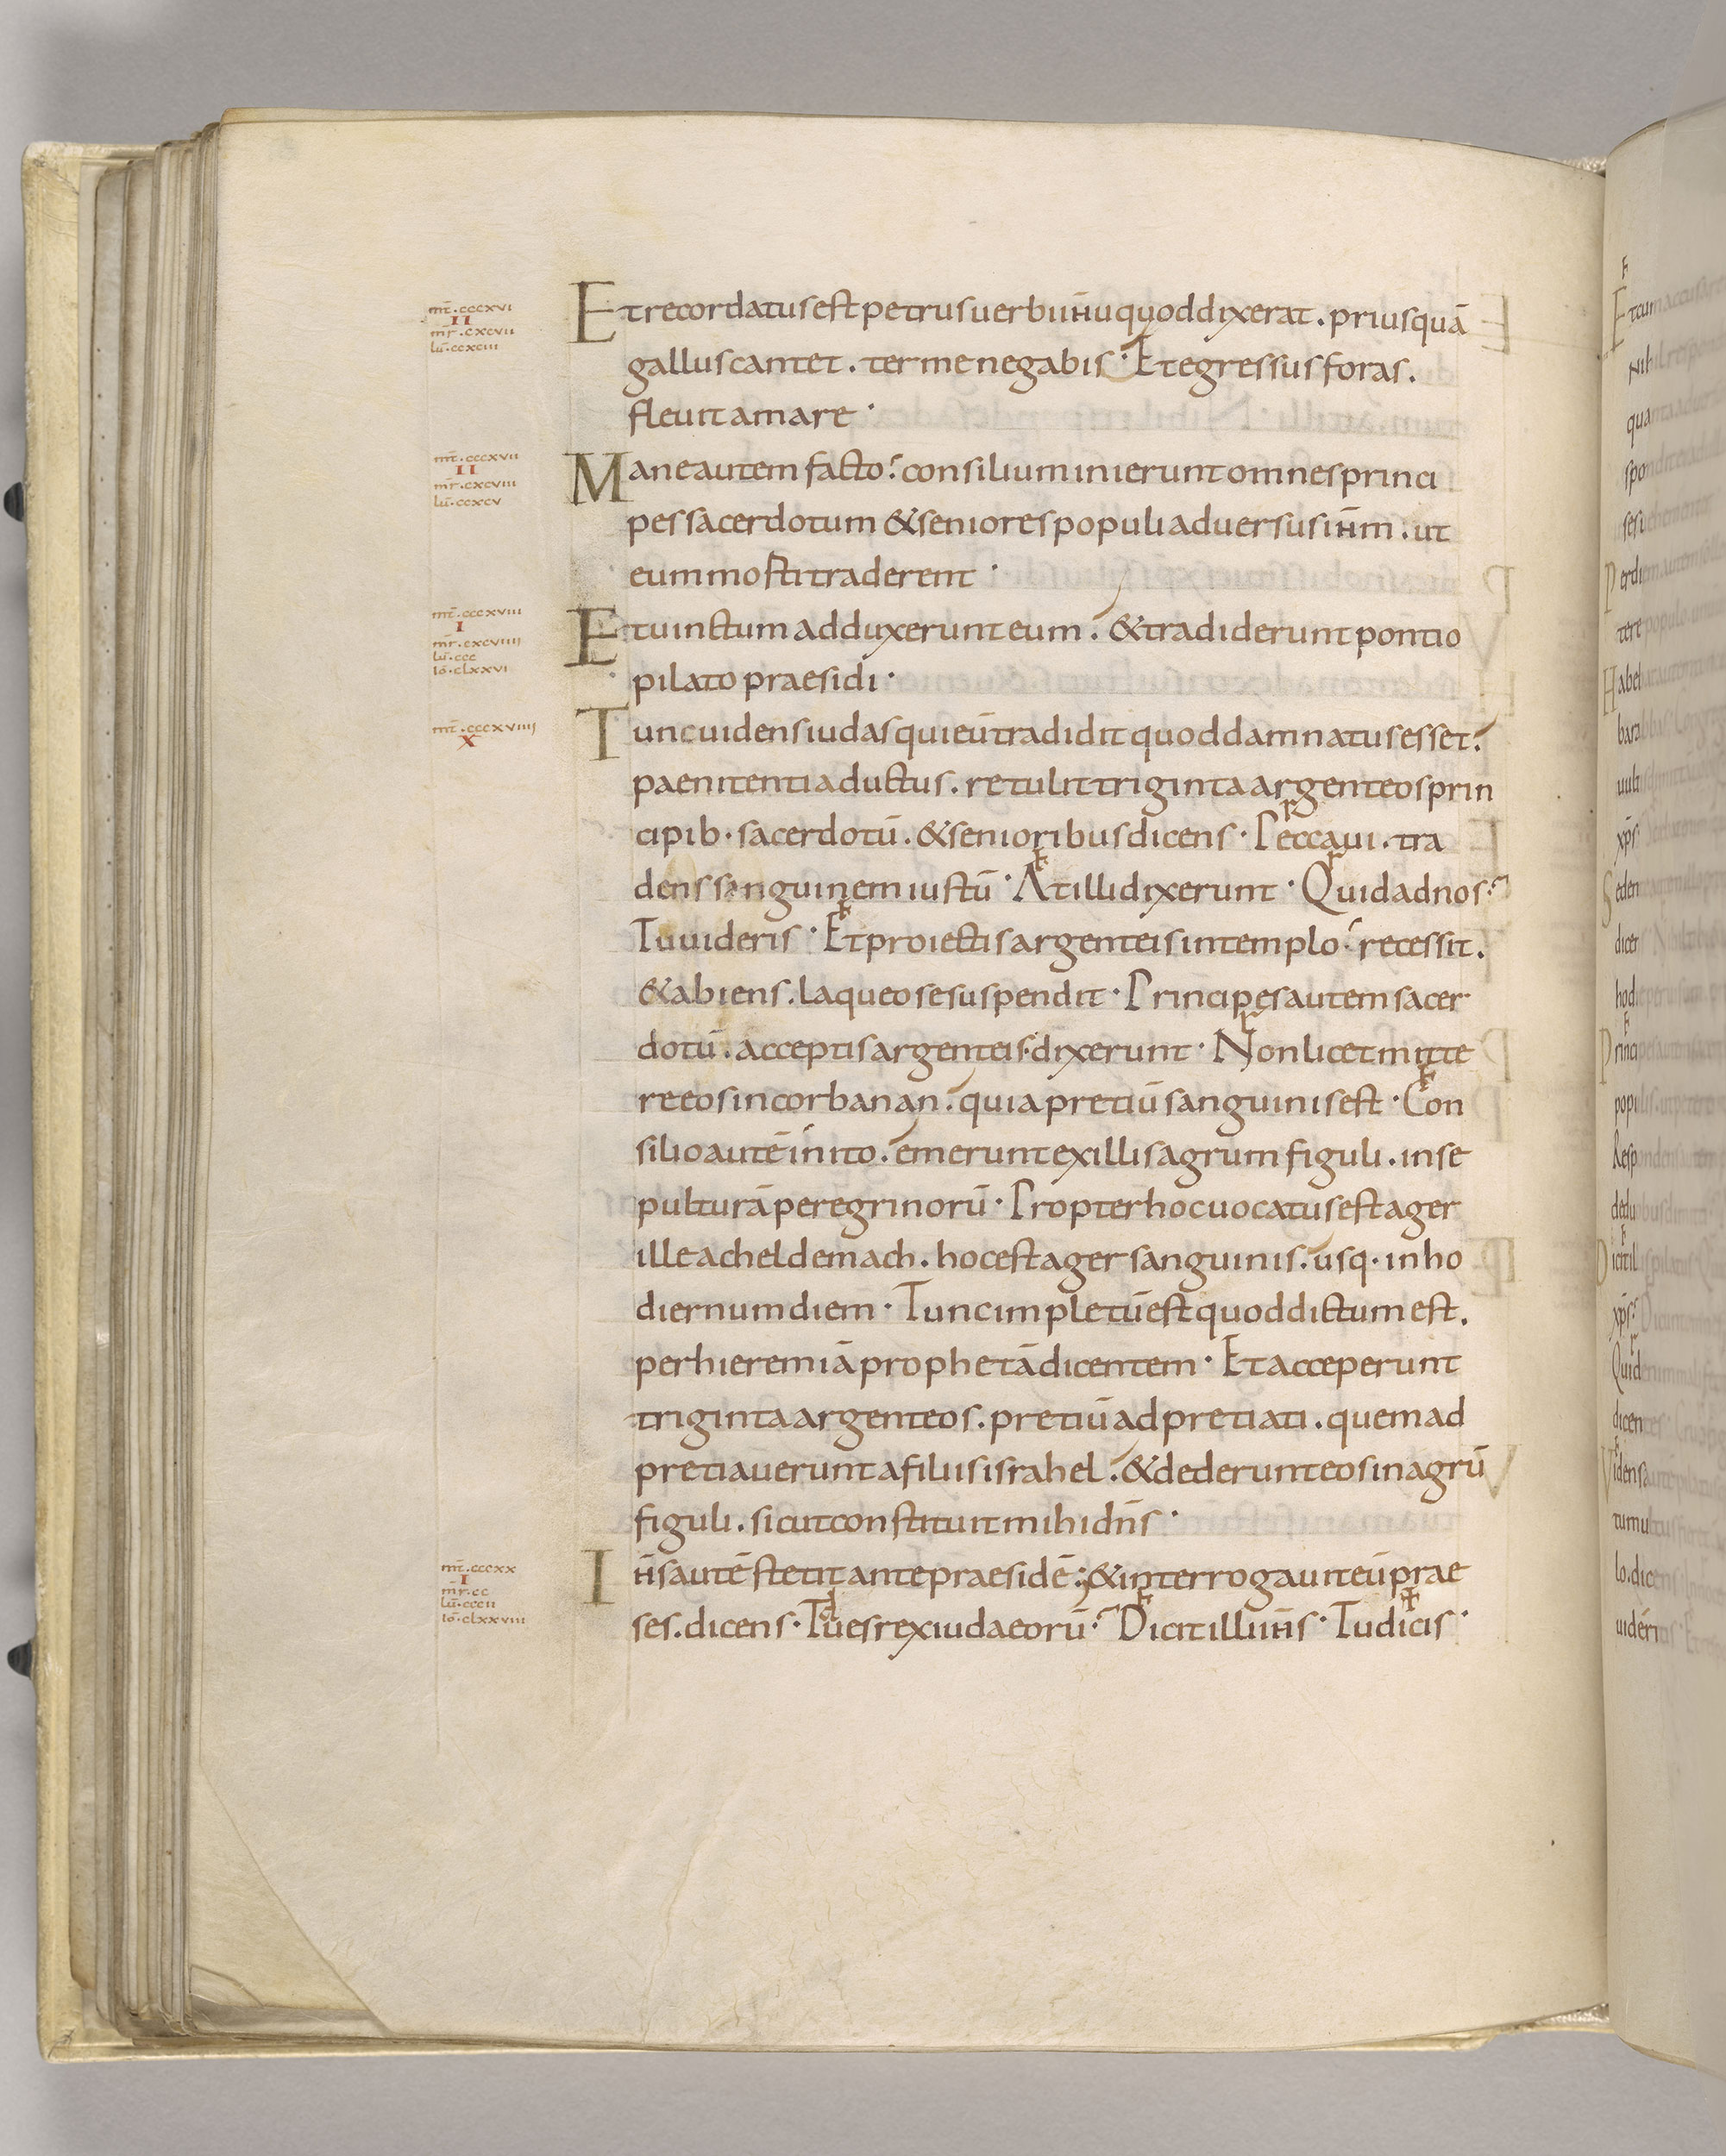 mt̄.cccxvi
II
mr̄.cxcvii
lū.ccxciii
Et recordatus est petrus uerbi ih̄u quod dixerat. priusquā
gallus cantet. ter me negabis· Et egressus foras.
fleuit amare·
mt̄.cccxvii
II
mr̄.cxcviii
lū.ccxcv
Mane autem facto: consilium inierunt omnes princi
pes sacerdotum & seniores populi aduersus ih̄m. ut
eum mosti traderent·
mt̄.cccxviii
I
mr̄.cxcviiii
lū.ccc
iō.clxxvi
Et uinctum adduxerunt eum. & tradiderunt pontio
pilato praesidi·
mt̄.cccxviiii
X
Tunc uidens iudas qui eū tradidit quod damnatus esset.
paenitentia ductus. retulit triginta argenteos prin
cipib· sacerdotū. & senioribus dicens· Peccaui. tra
dens sanguinem iustū· At illi dixerunt· Quid ad nos?
Tu uideris· Et proiectis argenteis in templo· recessit.
& abiens. laqueo se suspendit· Principes autem sacer
dotū. acceptis argenteis· dixerunt· Non licet mitte
re eos in corbanan. quia pretiū sanguinis est· Con
silio autē inito. emerunt ex illis agrum figuli. in se
pulturā peregrinorū· Propter hoc uocatus est ager
ille acheldemach. hoc est ager sanguinis. usq· in ho
diernum diem· Tunc impletū est quod dictum est.
per hieremiā prophetā dicentem· Et acceperunt
triginta argenteos. pretiū adpretiati. quem ad
pretiauerunt a filiis israhel. & dederunt eos in agrū
figuli. sicut constituit mihi dn̄s·
mt̄.cccxx
I
mr̄.cc
lū.cccii
iō.clxxviii
Ih̄s autē stetit ante praesidē; & interrogauit eū prae
ses. dicens· Tu es rex iudaeorū? Dicit illi ih̄s· Tu dicis·